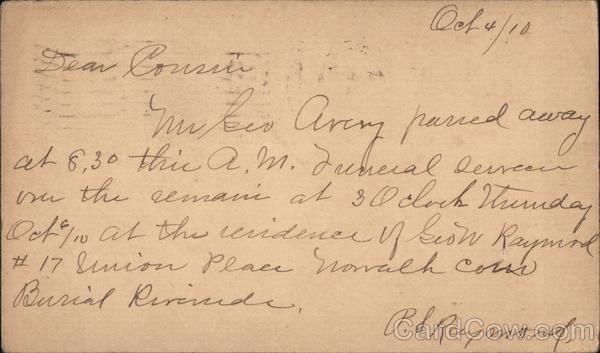 Oct 4/10
Dear Cousin
Mr Geo Avery passed away
at 8,30 this A.M. Funeral servces
over the remain at 3 Oclock Thursday
Oct 6/10 at the residence of Geo W Raymond
#17 Union Place Norwalk Conn
Burial Riverside.
CardCow.com